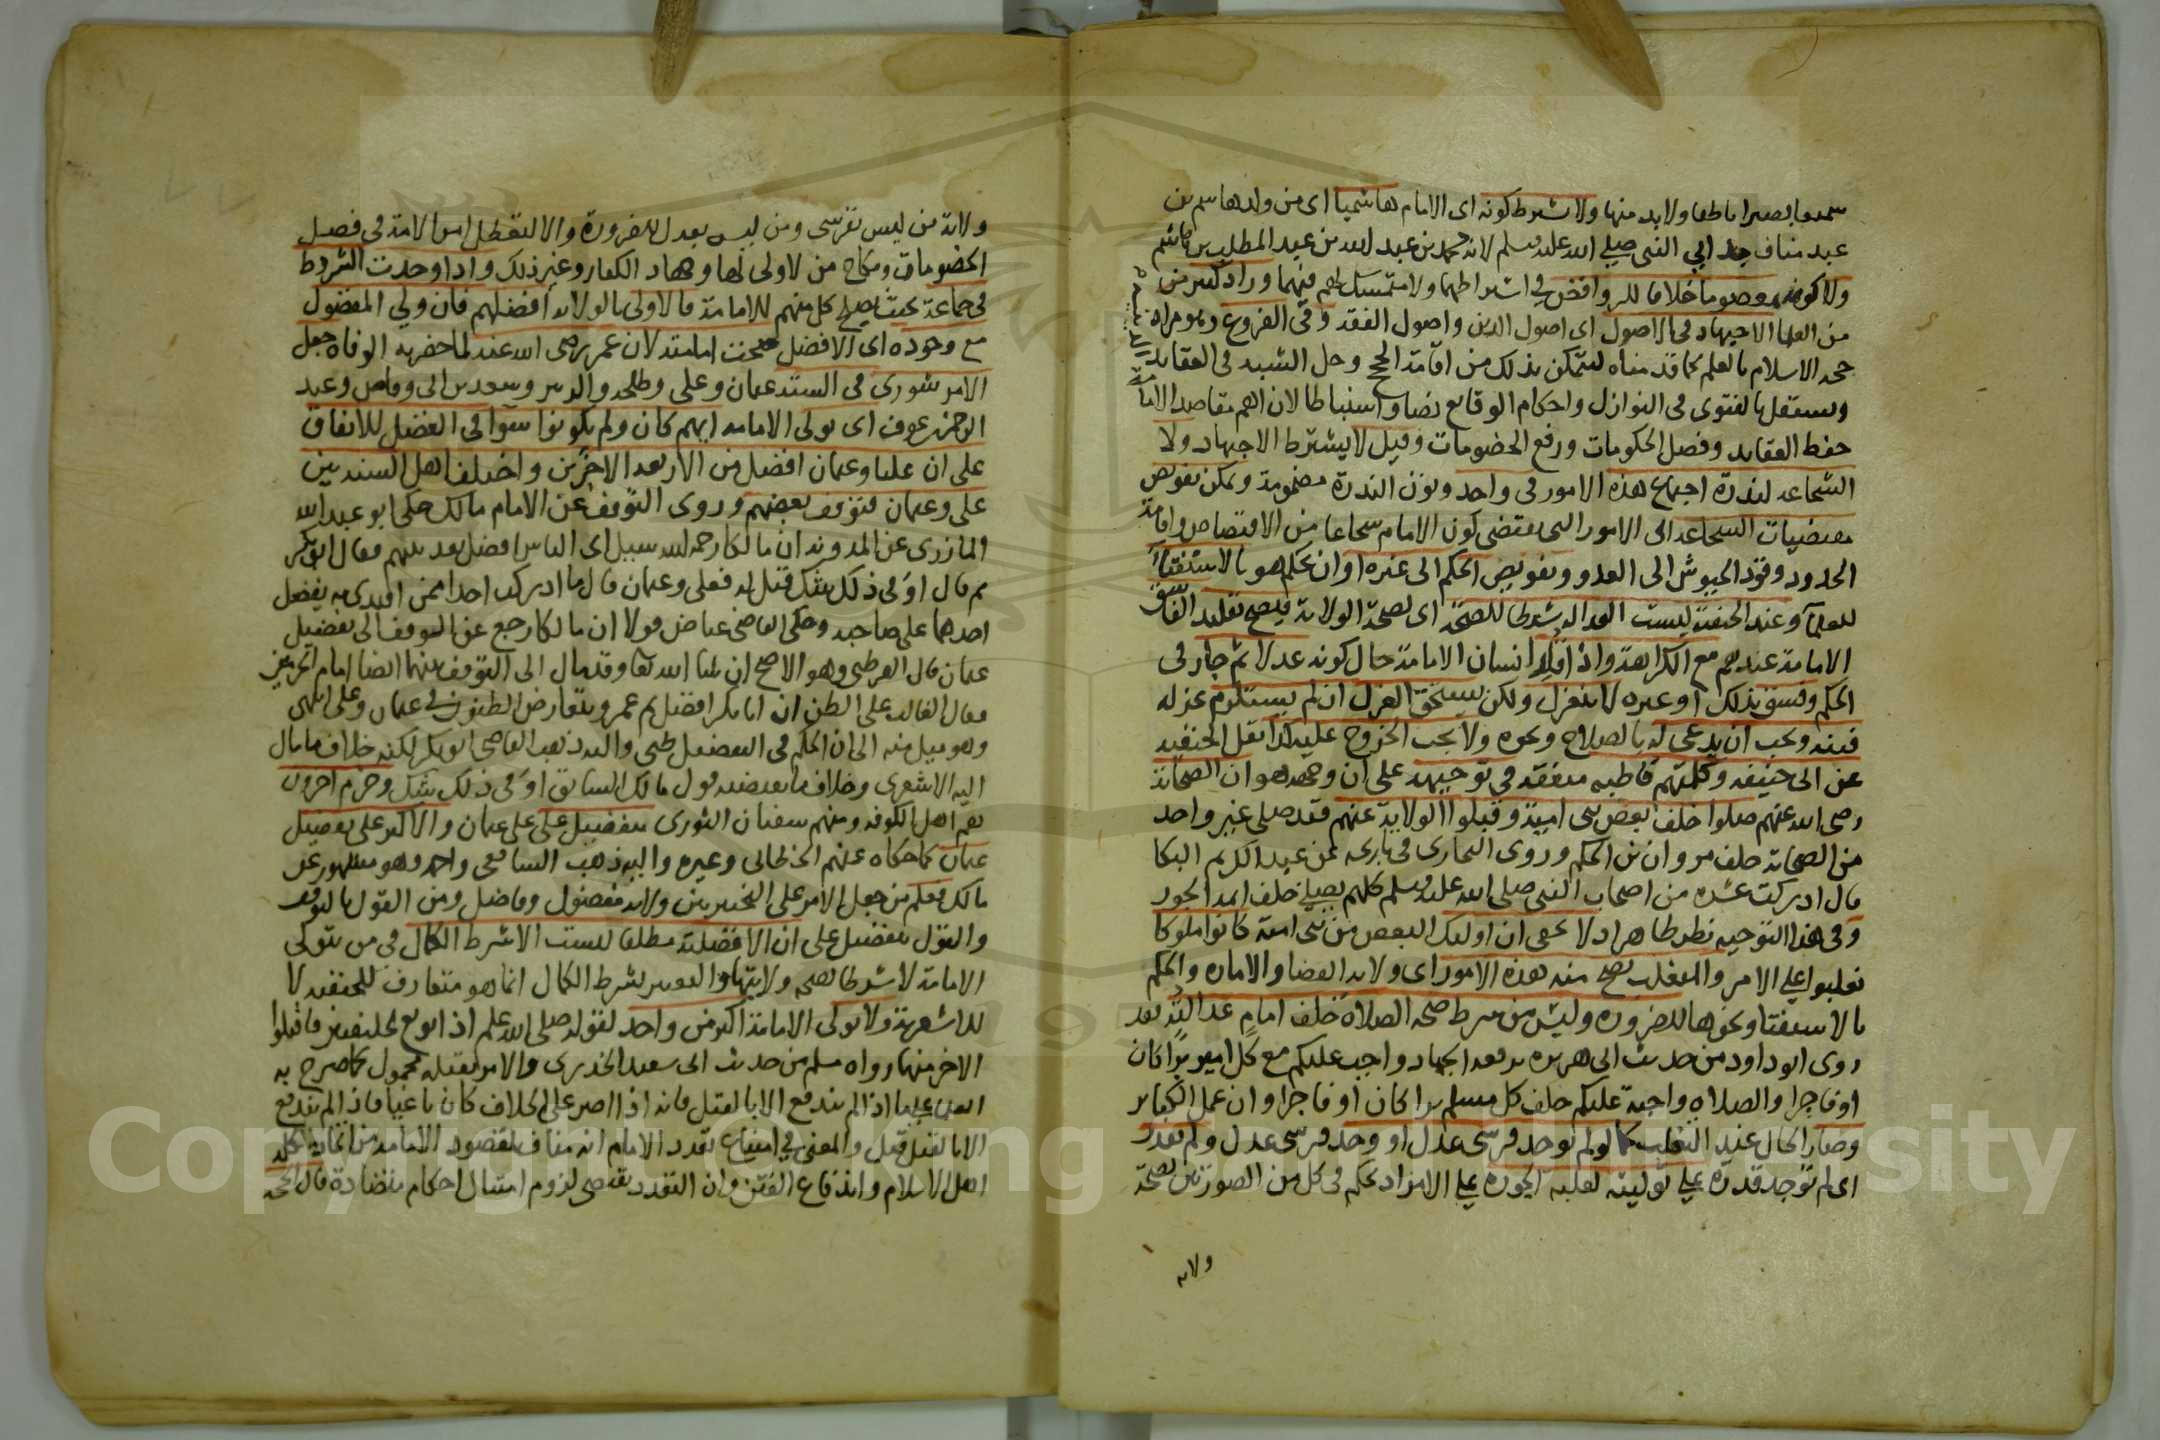 سميعا بصيرا ناطقا ولا بد منها ولا شرط كونه اى الامام هاشميا اى من ولد هاشم بن
عبد مناف جد ابي النبى صلى الله عليه وسلم لانه محمد بن عبد الله بن عبد المطلب بن هاشم
ولا كونه معصوما خلافا للروافض في اشتراطهما ولا متمسك لهم فيهما وزاد كثير من
من العلما الاجتهاد فى الاصول اى اصول الدين واصول الفقه وفى الفروع وهو مراد
حجة الاسلام بالعلم كما قدمناه ليتمكن بذلك من اقامة الحجج وحل الشبه فى العقايد
ويستقل بالفتوى فى النوازل واحكام الوقايع نصا واستنباطا لان اهم مقاصد الامامة
حفظ العقايد وفصل الحكومات ورفع الخصومات وقيل لا يشترط الاجتهاد ولا
الشجاعه لندرة اجتماع هذه الامور فى واحد وتمكن تفويض
مقتضيات الشجاعه اى الامور التى يقتضى كون الامام شجاعا من الاقتصاص واقامة
الحدود وقود الجيوش الى العدو وتفويض الحكم الى غيره او ان يحكم هو بالاستفتآء
للعلمآ وعند الحنفية ليست العداله شرطا للصحة اى لصحة الولاية فيصح تقليد الفاسق
الامامة عندهم مع الكراهة واذا قلد انسان الامامة حال كونه عدلا ثم جار فى
الحكم وفسق بذلك او غيره لا ينعزل ولكن يستحق العزل ان لم يستلزم عزله
فتنه ويجب ان يدعى له بالصلاح ونحوه ولا يجب الخروج عليه كذا نقل الحنفيه
عن ابى حنيفه وكلمتهم قاطبه متفقه فى توجيهه على ان وجهه هو ان الصحابة
رضى الله عنهم صلوا خلف بعض بنى امية وقبلوا الولاية عنهم فقد صلى غير واحد
من الصحابه خلف مروان بن الحكم وروى البخارى فى تاريخه عن عبد الكريم البكا
قال ادركت عشره من اصحاب النبى صلى الله عليه وسلم كلهم يصلى خلف ايمه الجور
وفى هذا التوجيه نظر ظاهر اذ لا يخفى ان اوليك البعض من بنى امية كانوا ملوكا
تغلبوا على الامر والمتغلب تصح منه هذه الامور اى ولاية القضا والاماره والحكم
بالاستفتا ونحوها للضروره وليس من شرط صحه الصلاة خلف امام عدالته فقد
روى ابو داود من حديث ابى هريره يرفعه الجهاد واجب عليكم مع كل امير برا كان
او فاجرا والصلاه واجبة عليكم خلف كل مسلم برا كان او فاجرا وان عمل الكباير
وصار الحال عند التغلب كما لو لم يوجد قرشى عدل او وجد قرشى عدل ولم يقدر
اى لم توجد قدرة على توليته لغلبة الجورة على الامر اذ يحكم فى كل من الصورتين بصحة
ولايه
ولاية من ليس بقرشى ومن ليس بعدل للضرورة والا لتعطل امر الامة فى فصل
الخصومات ونكاح من لا ولى لها وجهاد الكفار وغير ذلك واذا وجدت الشروط
فى جماعة بحيث يصلح كل منهم للامامة فالاولى بالولاية افضلهم فان ولي المفضول
مع وجوده اى الافضل صحت امامته لان عمر رضى الله عنه لما حضرته الوفاة جعل
الامر شورى فى الستة عثمان وعلى وطلحه والزبير وسعد بن ابى وقاص وعبد
الرحمن بن عوف اى يولى الامامه ايهم كان ولم يكونوا سوآ فى الفضل للاتفاق
على ان عليا وعثمان افضل من الاربعه الاخرين واختلف اهل السنه بين
على وعثمان فتوقف بعضهم وروى التوقف عن الامام مالك حكى ابو عبد الله
المازرى عن المدونه ان مالكا رحمه الله سيل اى الناس افضل بعد نبيهم فقال ابو بكر
ثم قال اوَ فى ذلك شك قيل له فعلى وعثمان قال ما ادركت احدا ممن اقتدى به يفضل
احدهما على صاحبه وحكى القاضى عياض قولا ان مالكا رجع عن الوقف الى تفضيل
عثمان قال القرطبى وهو الاصح ان شا الله تعا وقد مال الى التوقف بينهما ايضا امام الحرمين
فقال الغالب على الظن ان ابا بكر افضل ثم عمر وتتعارض الظنون في عثمان وعلى انتهى
وهو ميل منه الى ان الحكم فى التفضيل ظنى واليه ذهب القاضى ابو بكر لكنه خلاف ما مال
اليه الاشعرى وخلاف ما يقتضيه قول مالك السابق اوَ فى ذلك شك وجزم اخرون
هم اهل الكوفه ومنهم سفيان الثورى بتفضيل على على عثمان والاكثر على تفضيل
عثمان كما حكاه عنهم الخطابى وغيره واليه ذهب الشافعى واحمد وهو مشهور عن
مالك فعلم من جعل الامر على التخيير بين ولاية مفضول وفاضل ومن القول بالوقف
والقول بتفضيل على ان الافضلية مطلقا ليست الا شرط الكمال فى من يتولى
الامامة لا شرطا لصحه ولايتها والتعبير بشرط الكمال انما هو متعارف للحنفيه لا
للاشعرية ولا يولى الامامة اكثر من واحد لقوله صلى الله عليه وسلم اذا بويع لخليفتين فاقتلوا
الاخر منهما رواه مسلم من حديث ابى سعيد الخدرى والامر بقتله محمول كما صرح به
العلما على ما اذا لم يندفع الا بالقتل فانه اذا اصر على الخلاف كان باغيا فاذا لم يندفع
الا بالقتل قتل والمعنى في امتناع تعدد الامام انه مناف لمقصود الامامه من اتحاد كلمة
اهل الاسلام واندفاع الفتن وان التعدد يقتضى لزوم امتثال احكام متضادة قال الحجة